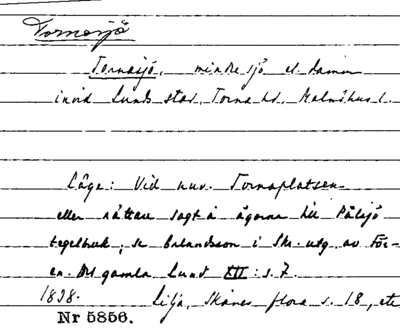 Tornasjö
Tornasjö, mindre sjö el. damm
invid Lunds stad, Torna hd, Malmöhus l.
Läge: Vid nuv. Tornaplatsen
eller rättare sagt å ägorna till Pålsjö
tegelbruk; se Erlandsson i Skr. utg. av För-
en. Det gamla Lund XII: s. 7.
1838. Lilja, Skånes flora s. 18, etc
Nr 5856.